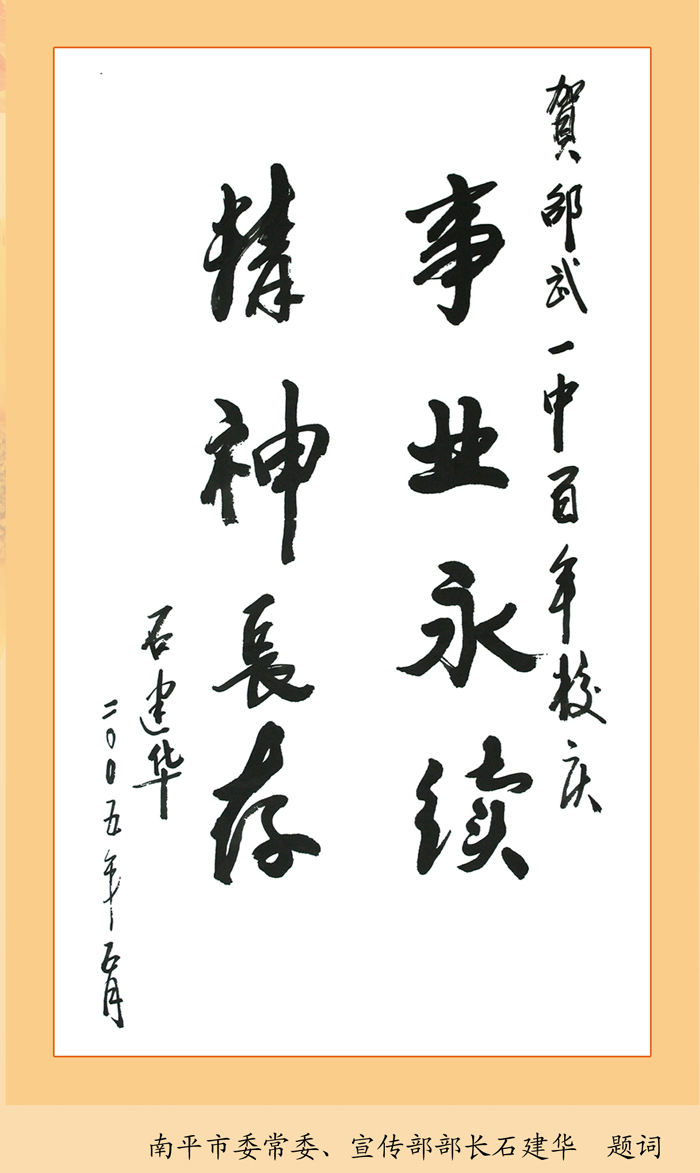 賀邵武一中百年校庆
事业永续
精神長存
石建华
二〇〇五年五月
南平市委常委、宣传部部长石建华 题词